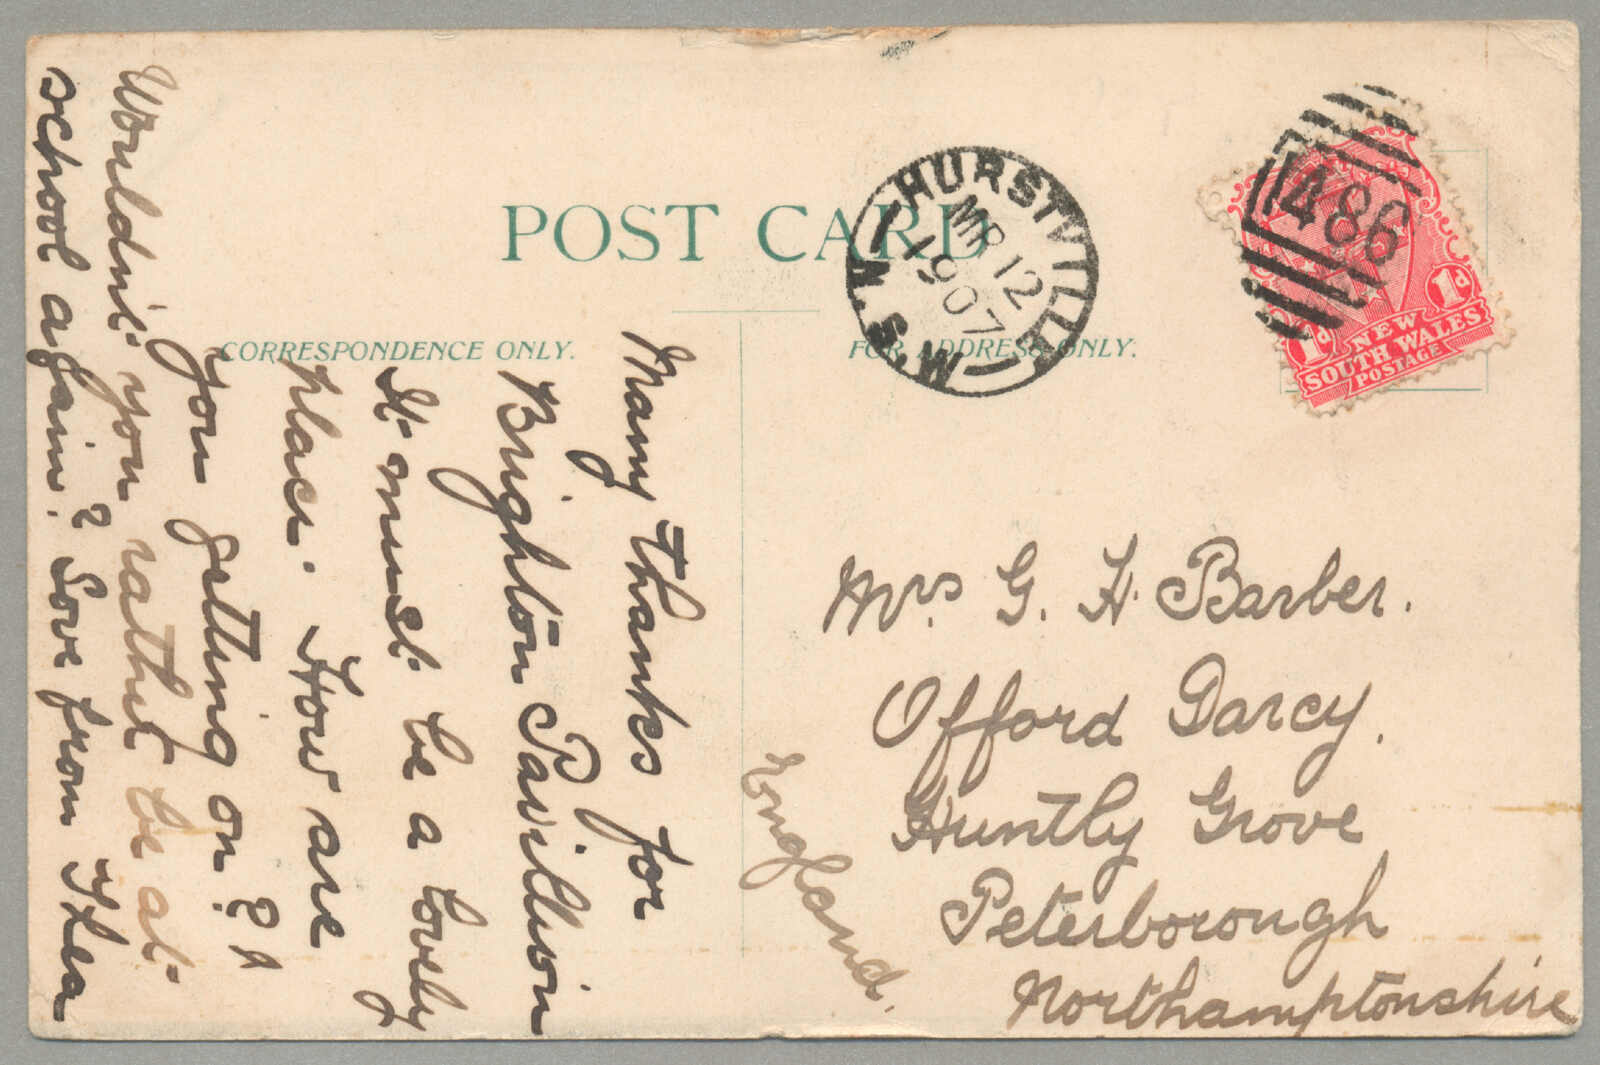 POST CARD
CORRESPONDENCE ONLY.
FOR ADDRESS ONLY.
HURSTVILLE
MR 12
1907
N.S.W
486
1d 1d
NEW
SOUTH WALES
POSTAGE
Many thanks for
Brighton Pavillion
It must be a lovely
place. How are
you getting on?
Wouldn't you rather be at
school again? Love from Thea
Mrs G. H. Barber.
Offord Darcy.
Huntly Grove
Peterborough
Northamptonshire
England.